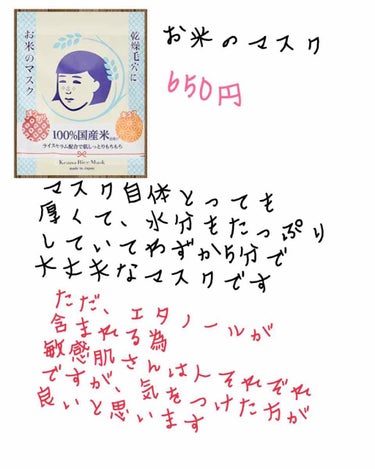 乾燥毛穴に
お米のマスク
100%国産米
ライスセラム配合で肌しっとりもちもち
Keana Rice Mask
made in Japan
お米のマスク
650円
マスク自体とっても
厚くて、水分もたっぷり
していてわずか5分で
大丈夫なマスクです
ただ、エタノールが
含まれる為
敏感肌さんは人それぞれ
ですが、気をつけた方が
良いと思います